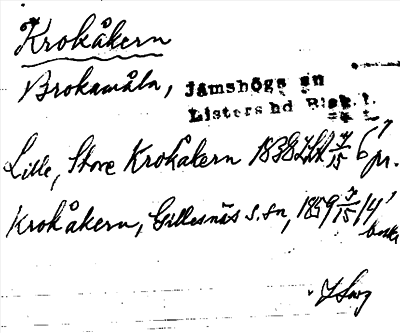 Krokåkern
Brokamåla, Jämshögs sn
Listers hd Blek. l.
Lille, Store Krokåkern 1838 LSA 7/15 6 pr.
Krokåkern, Gillesnäs s. sn, 1859 7/15 14